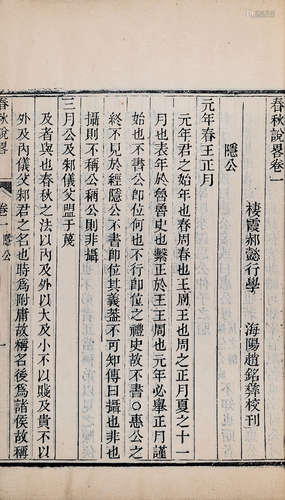 春秋說畧卷一
棲霞郝懿行學　海陽趙銘彝校刊
隱公
元年春王正月
元年君之始年也春周春也王周王也周之正月夏之十一
月也表年於魯史也繫正於王王周也元年必舉正月謹
始也不書公即位何也不行即位之禮史故不書○惠公之
終不見於經隱公不書即位其義蓋不可知傳曰攝也非也
攝則不稱公稱公則非攝
三月公及邾儀父盟于蔑
及者與也春秋之法以內及外以大及小不以賤及貴不以
外及內儀父邾君之名也時為附庸故稱名後為諸侯故稱
春秋說畧
卷一 隱公
一